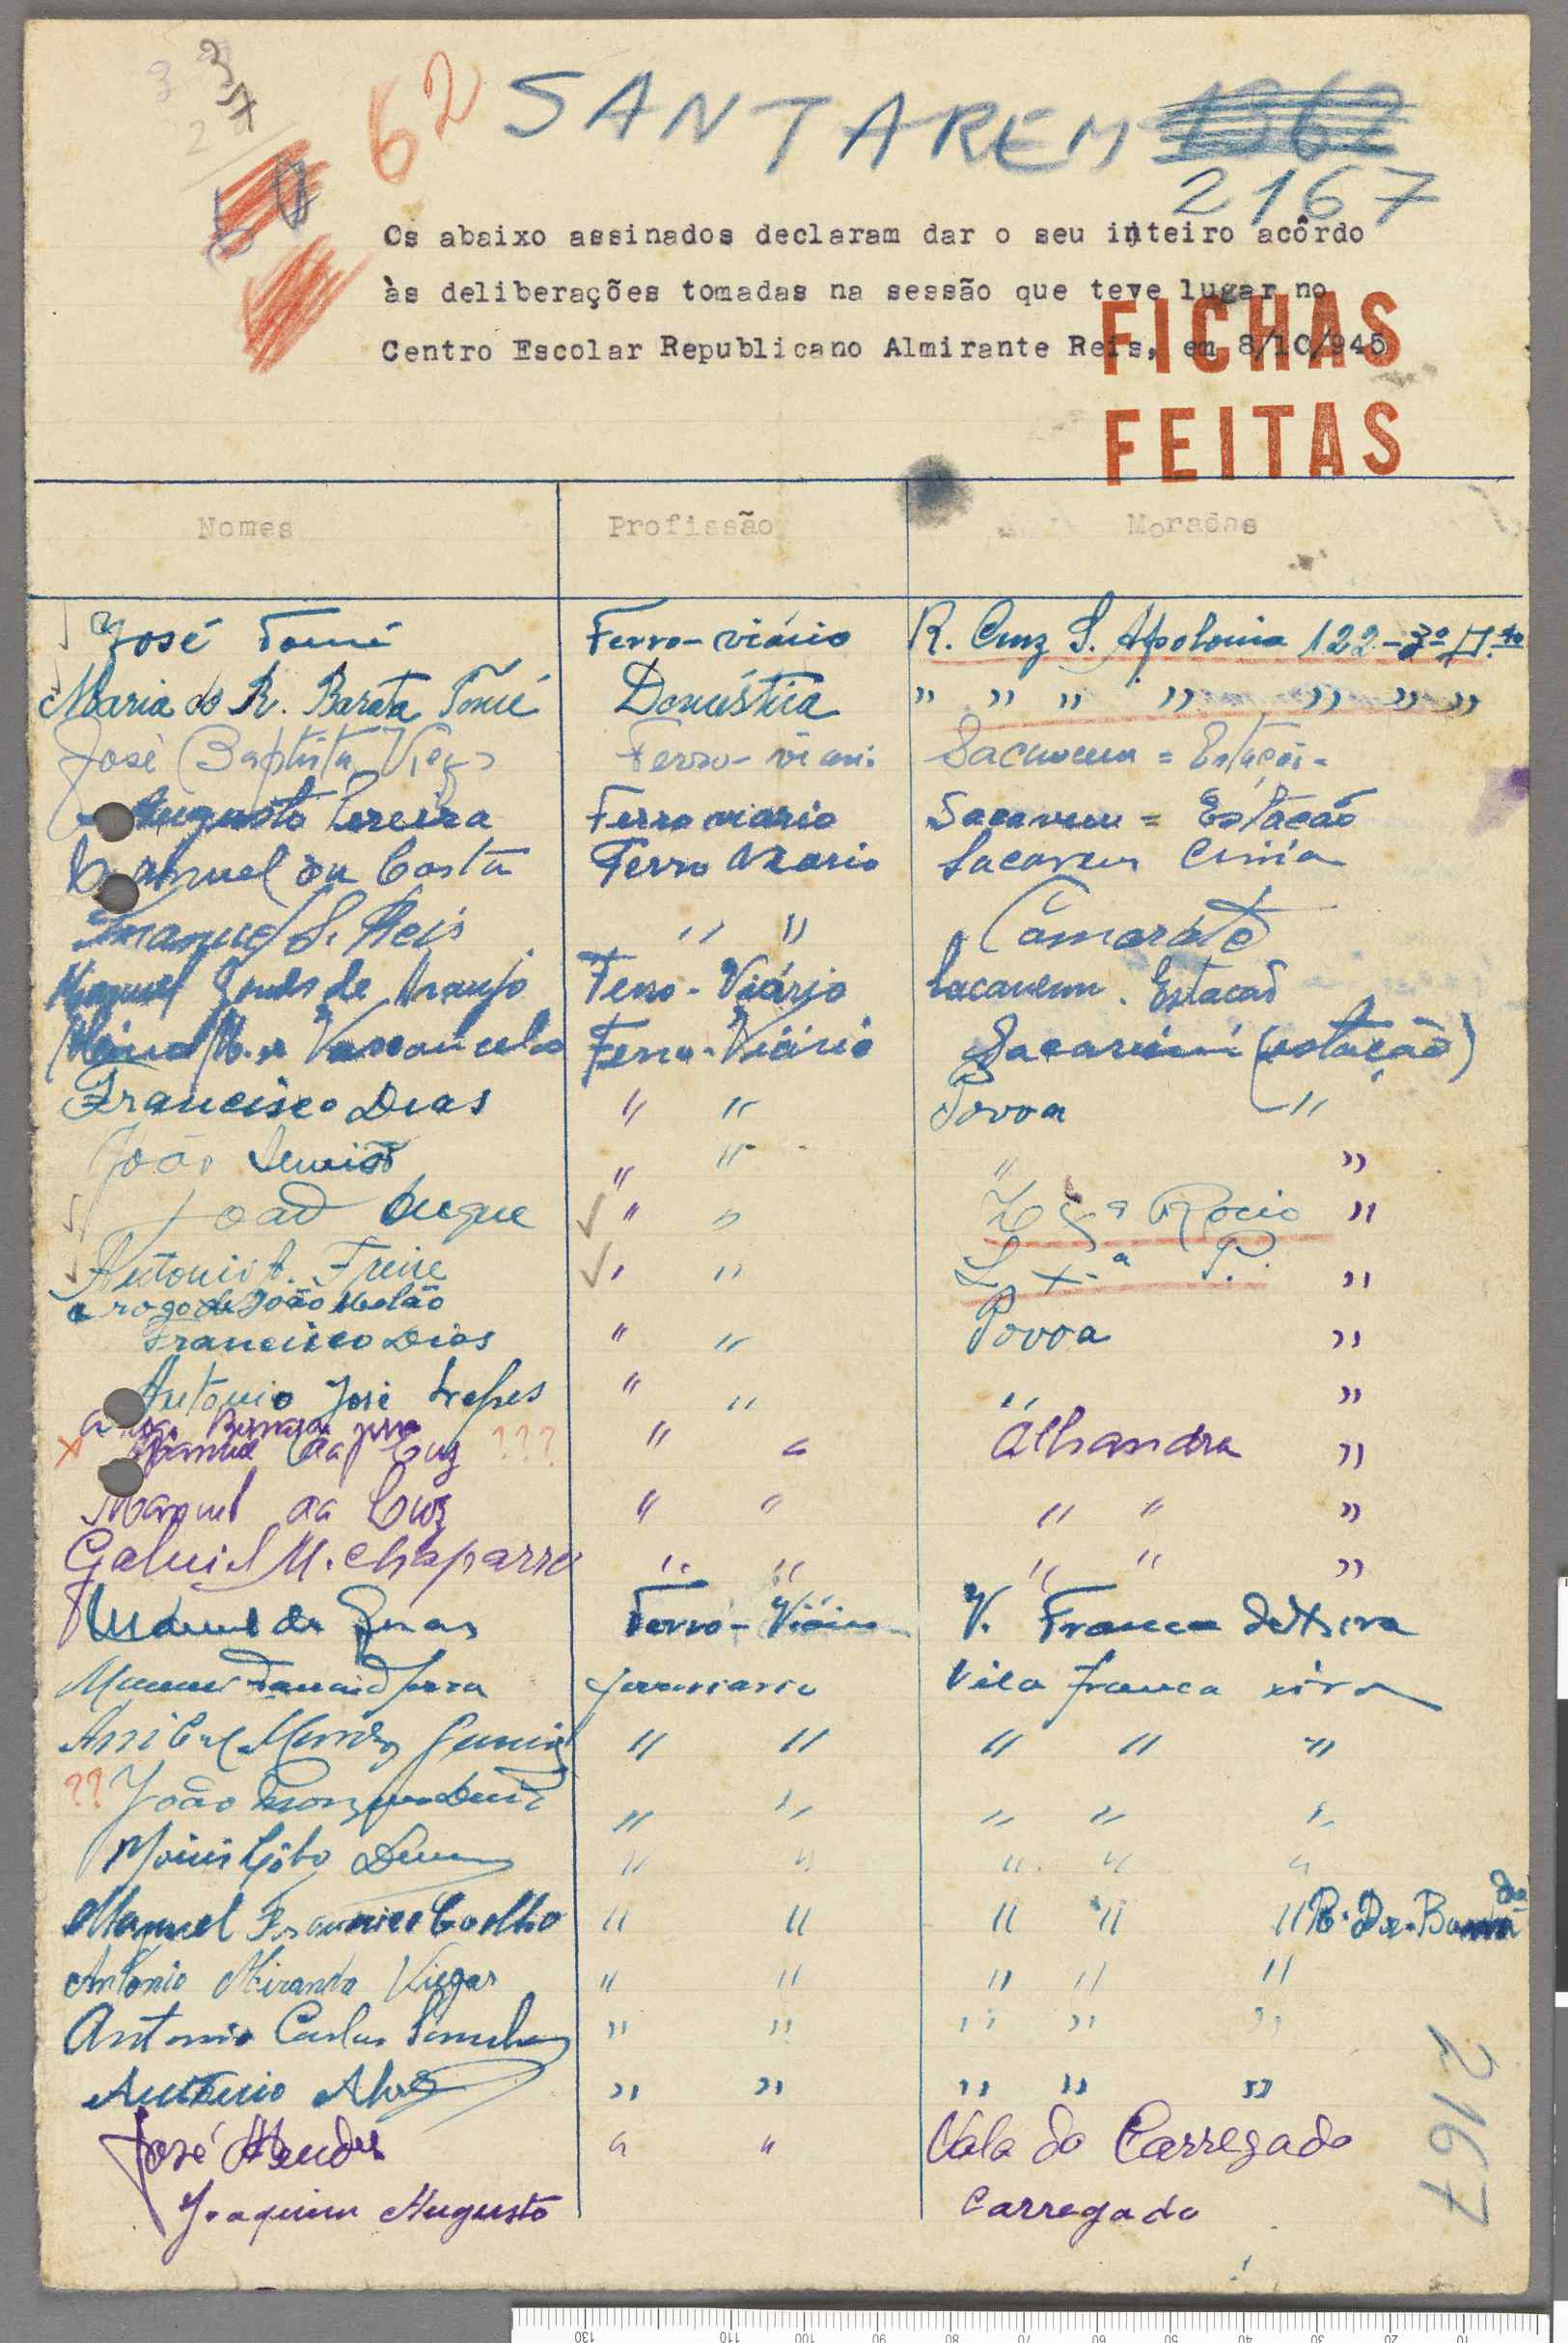 3
37
2
62 SANTAREM 1962
2167
Os abaixo assinados declaram dar o seu inteiro acôrdo
às deliberações tomadas na sessão que teve lugar no
Centro Escolar Republicano Almirante Reis, em 8/10/945
FICHAS
FEITAS
Nomes Profissão Moradas
José Tomé Ferro-viário R. Cruz S. Apolonia 122-3º D.to
Maria do R. Barata Tomé Doméstica " " " " " " "
José Baptista Ferro-viari. Sacavem = Estação
Augusto Pereira Ferro viario Sacavem = Estação
Manuel da Costa Ferro Viario Sacavem Cima
Manuel S. Reis " " Camarate
Manuel Gomes de Araujo Ferro-Viário Sacavem. Estacão
M. Vasconcelos Ferro-Viário Sacavem (estação)
Francisco Dias " " Povoa "
João " " " "
João Duque " " Rocio "
Antonio A. Freire " " L x.ª P. "
a rogo de João Melão
Francisco Dias " " Povoa "
Antonio José Lopes " " " "
a
Manuel da Cruz ??? " " Alhandra "
Manuel da Cruz " " " " "
Gabriel M. Chaparro " " " " "
Manuel de Ferro-Viário V. Franca de Xira
Manuel ferroviario Vila franca xira
Anibal " " " " "
?? João " " " " "
Lobo " " " " "
Manuel Francisco Coelho " " " " " R. Dr.
Antonio Miranda Viegas " " " " "
Antonio Carlos " " " " "
Antonio Alves " " " " "
José Mendes " " Vala do Carregado
Joaquim Augusto Carregado
2167
130 110 100 90 80 70 60 50 40 30 20 10